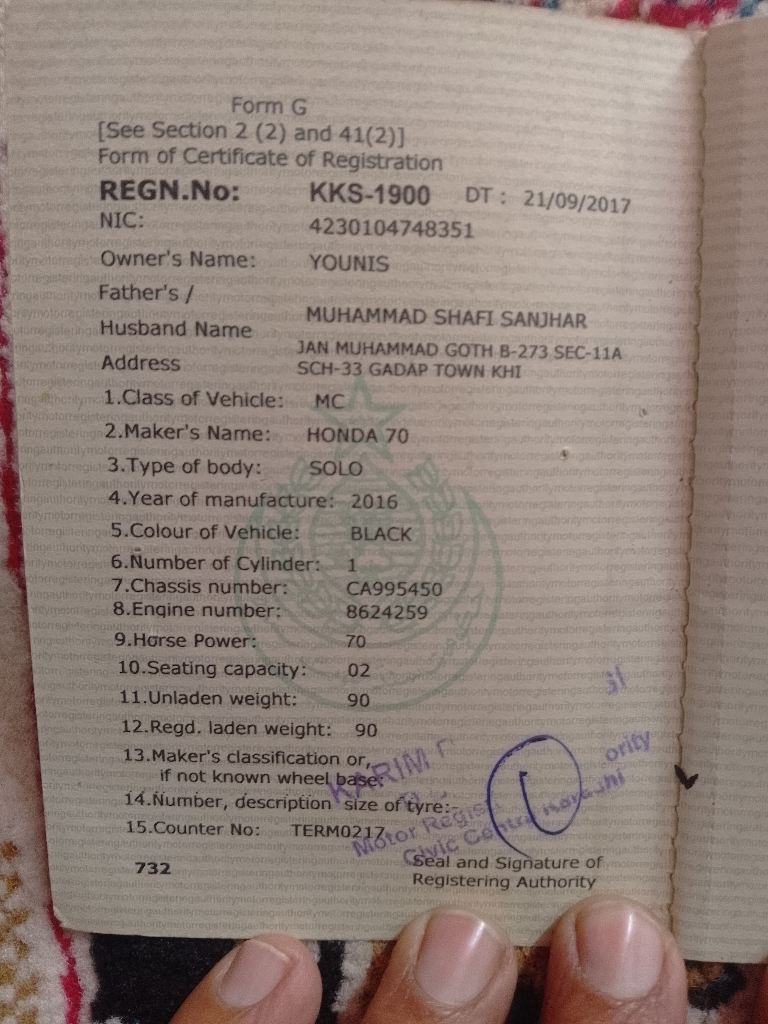 Form G
[See Section 2 (2) and 41(2)]
Form of Certificate of Registration
REGN.No: KKS-1900 DT : 21/09/2017
NIC: 4230104748351
Owner's Name: YOUNIS
Father's /
Husband Name MUHAMMAD SHAFI SANJHAR
Address JAN MUHAMMAD GOTH B-273 SEC-11A
SCH-33 GADAP TOWN KHI
1.Class of Vehicle: MC
2.Maker's Name: HONDA 70
3.Type of body: SOLO
4.Year of manufacture: 2016
5.Colour of Vehicle: BLACK
6.Number of Cylinder: 1
7.Chassis number: CA995450
8.Engine number: 8624259
9.Horse Power: 70
10.Seating capacity: 02
11.Unladen weight: 90
12.Regd. laden weight: 90
13.Maker's classification or,
if not known wheel base:
KARIM
14.Number, description size of tyre:-
ority
Motor Regis
15.Counter No: TERM0217
Civic Centre Karachi
732
Seal and Signature of
Registering Authority